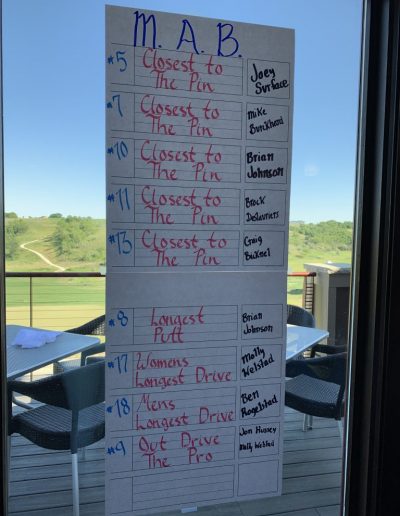 M. A. B.
#5 Closest to The Pin Joey Surface
#7 Closest to The Pin Mike Burckhard
#10 Closest to The Pin Brian Johnson
#11 Closest to The Pin Brock Deslauriers
#13 Closest to The Pin Craig Bucknel
#8 Longest Putt Brian Johnson
#17 Womens Longest Drive Molly Welstad
#18 Mens Longest Drive Ben Rogelstad
#9 Out Drive The Pro Jon Hussey
Molly Welstad